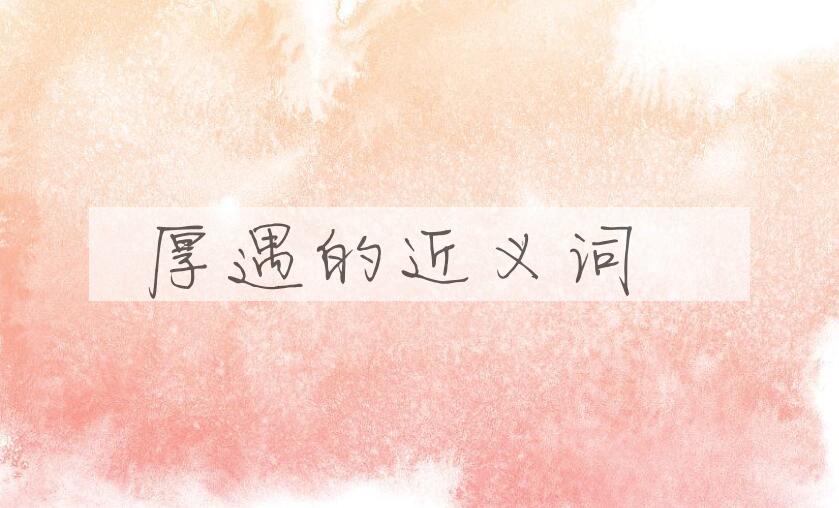 厚遇的近义词